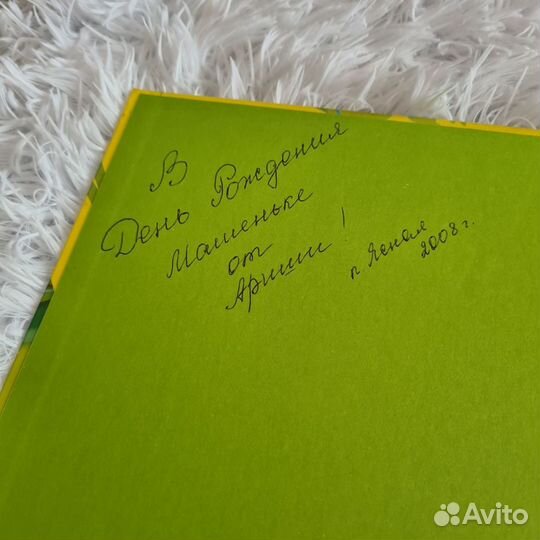 В
День Рождения
Машеньке
от
Ариши!
п. Ясная
2008 г.
Avito